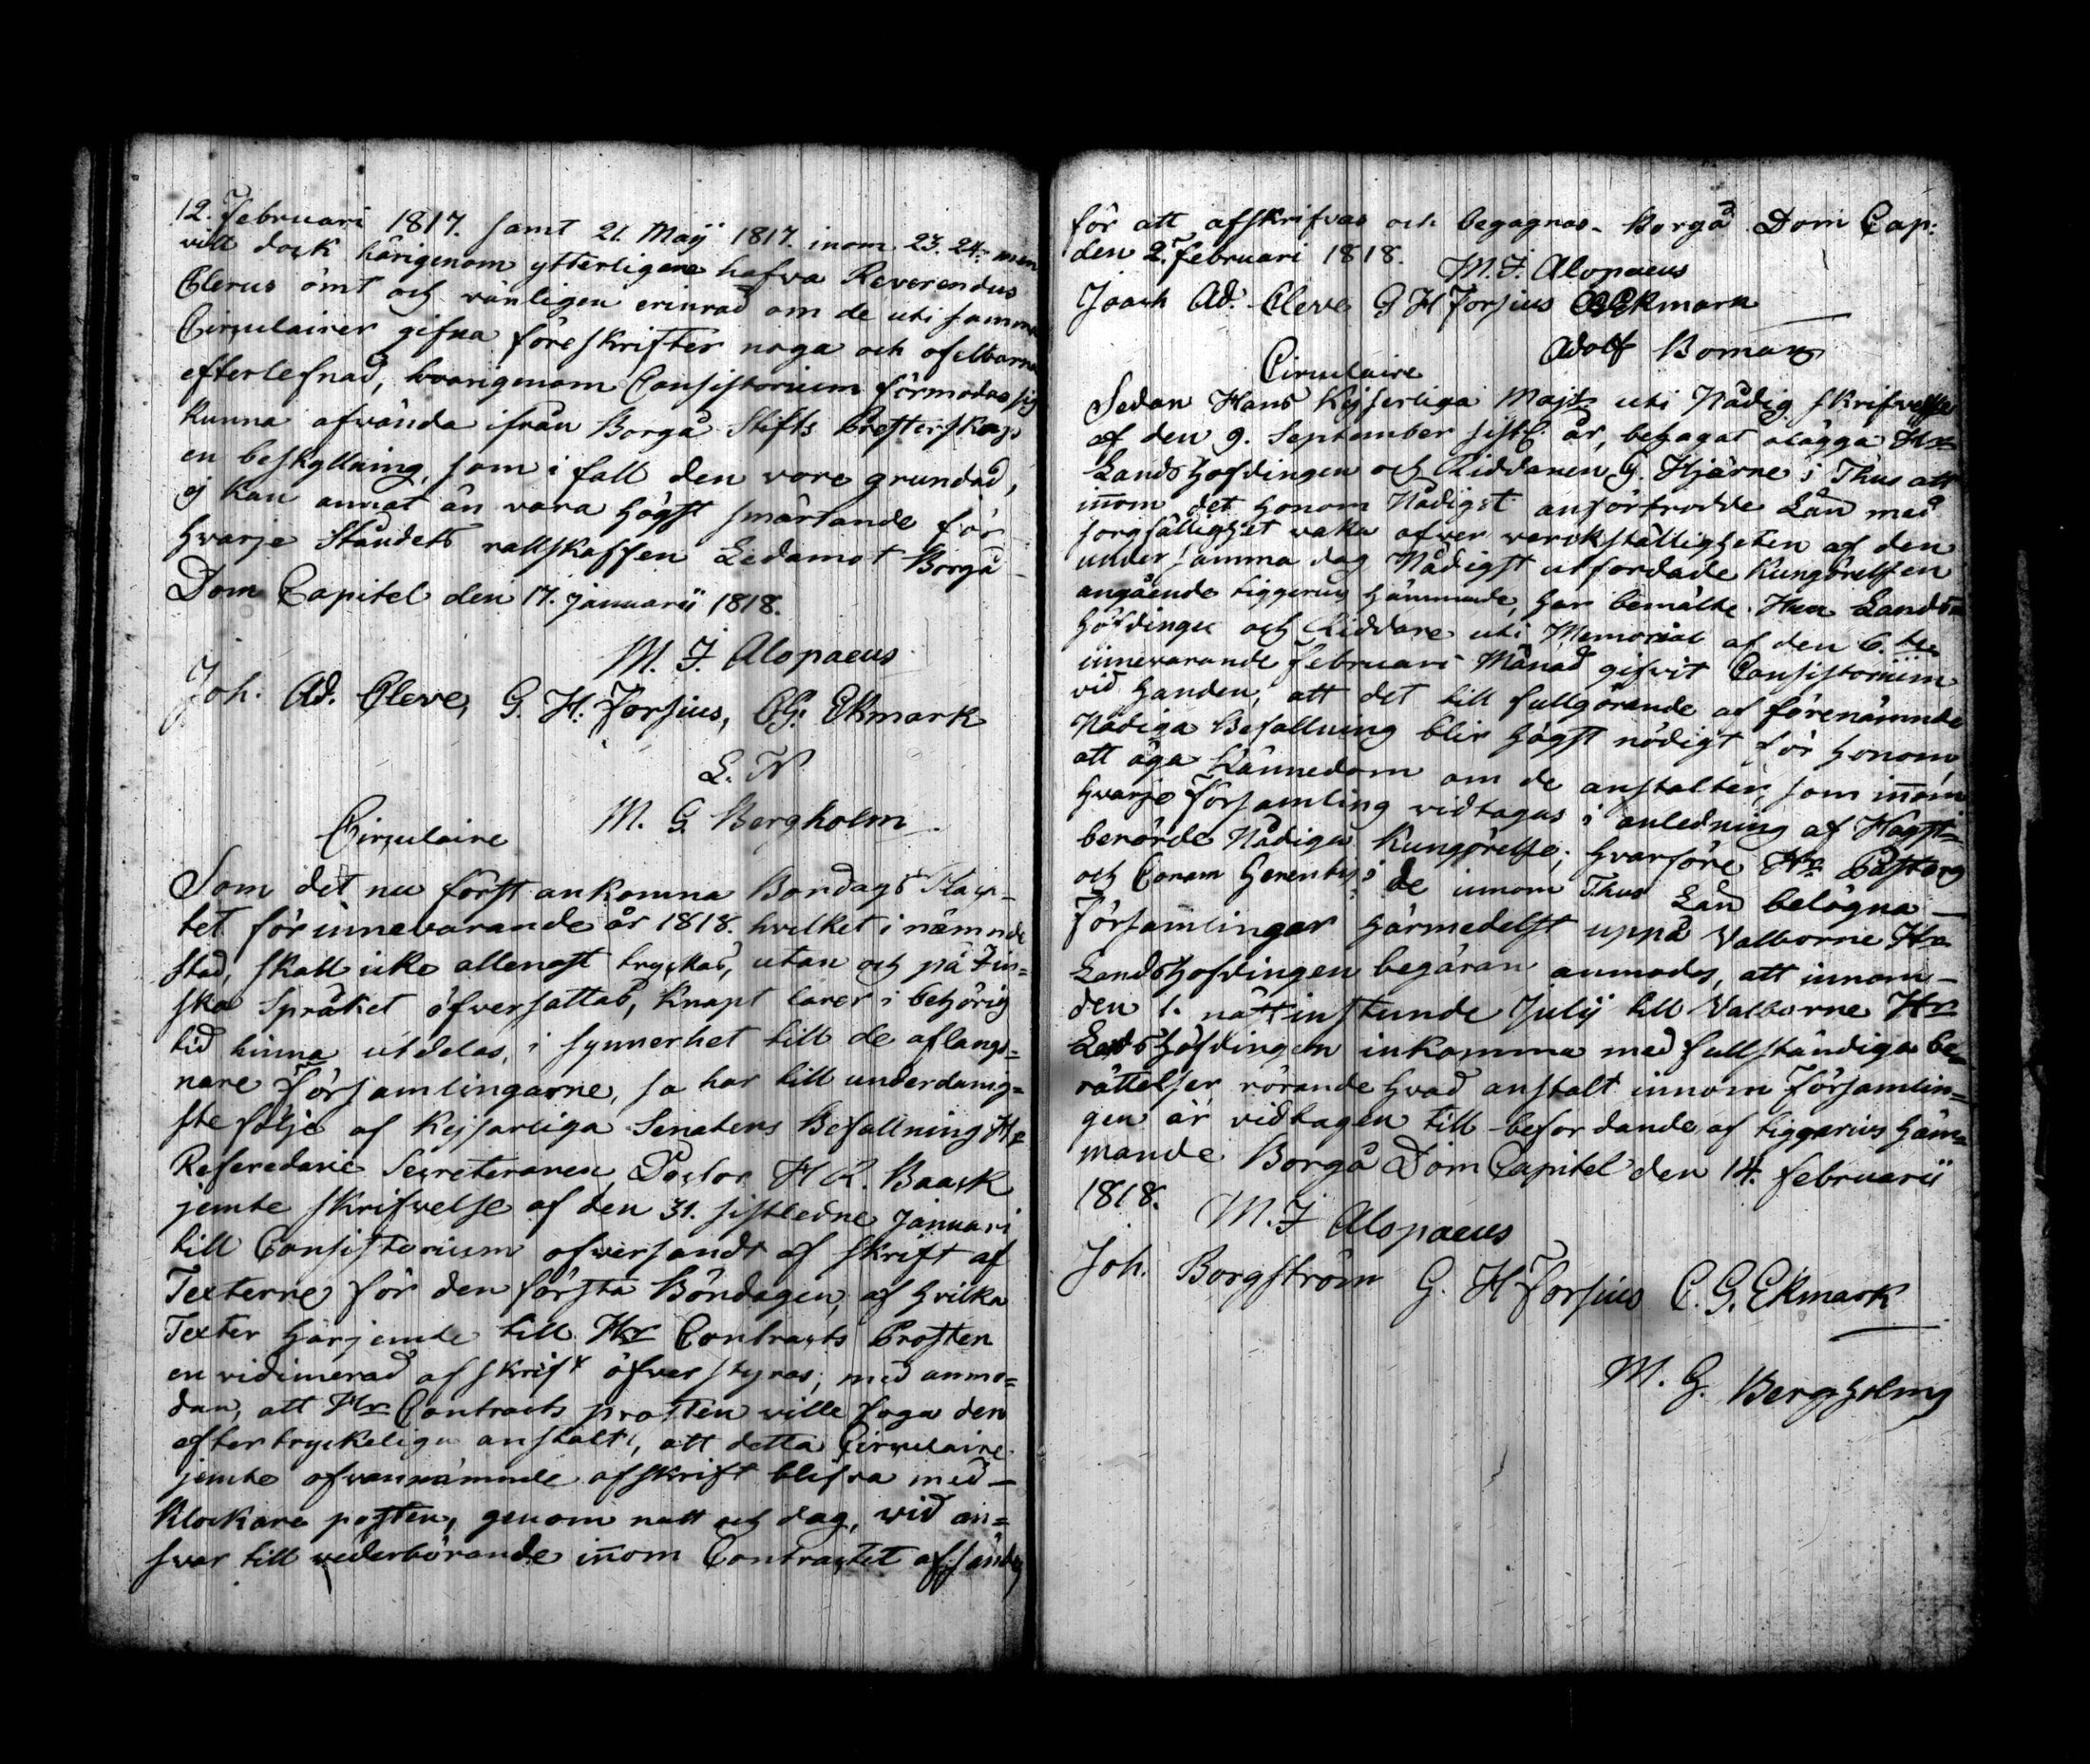 12. Februari 1817. samt 21. Maÿ 1817. inom 23. 24. men
vill dock härigenom ytterligene hafva Reverendus
Clerus ömt och vänligen erinrad om de uti samma
Circulairer gifna föreskrifter noga och ofelbarna
efterlefnad, hvarigenom Consistorium förmodas sig
kunna afvända ifrån Borgå Stifts Presterskap
en beskyllning, som i fall den vore grundad,
ej kan annat än vara högst smärtande för
hvarje Ståndets rättskaffen Ledamot Borgå
Dom Capitel den 17. januarii 1818.
M. J. Alopaeus
Joh. Ad. Cleve, G. H. Forsius, CG. Ekmark
L. N
M. G. Bergholm
Circulaire
Som det nu först ankomna Bondags Placa-
tet för innevarande år 1818. hvilket i nämnde
stad, skall icke allenast tryckas, utan och på Fin=
ska Språket öfversättas, knapt lärer i behörig
tid hinna utdelas, i synnerhet till de aflängs=
nare Församlingarne, så har till underdånig=
ste följe af Kejserliga Senatens Befallning Hr
Referedarie Secreteraren, Doctor H R. Baack
jemte skrifwelse af den 31. sistledne Januari
till Consistorium ofwersändt af skrift af
Texterne för den första Böndagen, af hvilka
Texter härjemte till Hr Contracts Prosten
en vidimerad afskrift öfverstyras; med anmo=
dan, att Hr Contracts prosten wille foga den
eftertryckeliga anstalt, att detta Circulaire
jemte ofvannämnde afskrift blifva med-
Klockare posten, genom natt och dag, wid an=
svar till wederbörande inom Contractet afsände
för att afskrifvas och begagnas. Borgå Dom Cap:
den 2. Februari 1818.
M. J. Alopaeus
Joach Ad. Cleve G H Forsius CGEkmark
Adolf Boman
Circulaire
Sedan Hans Kejserliga Majts uti Nådig skrifvelse
af den 9. September sistl. år, behagat ålägga Hr
Landshöfdingen och Riddaren G. Hjärne i Thus att
inom det honom Nådigst anförtrodde Län med
sorgfällighet vaka öfwer werckställigheten af den
under samma dag Nådigst utfärdade Kungörelsen
angående tiggeriets hämmande, har bemälte Herr Lands
höfdinge och Riddare uti Memorial af den 6. dns
innevarande februari Månad gifvit Consistorium
vid handen, att det till fullgörande af förenämnde
Nådiga Befallning blir högst nödigt för honom,
att äga kännedom om de anstalter, som inom
hvarje Församling vidtagas i anledning af Högst=
berörde Nådiga Kungörelse; hvarföre Hr Pastorer
och Coram Gerentes i de innom Thus Län belägna –
Församlingar härmedelst uppå Valborne Hr
Landshöfdingen begäran anmodas, att innom –
den 1. nästinstunde Julÿ till Valborne Hr
Landshöfdingen inkomma med fullständiga be=
rättelser rörande hvad anstalt innom Församlin=
gen är vidtagen till befordande af tiggeriets häm=
mande Borgå Dom Capitel den 14. februarii
1818.
M. J Alopaeus
Joh. Borgström G. H Forsius C. G. Ekmark
M. G. Bergholm